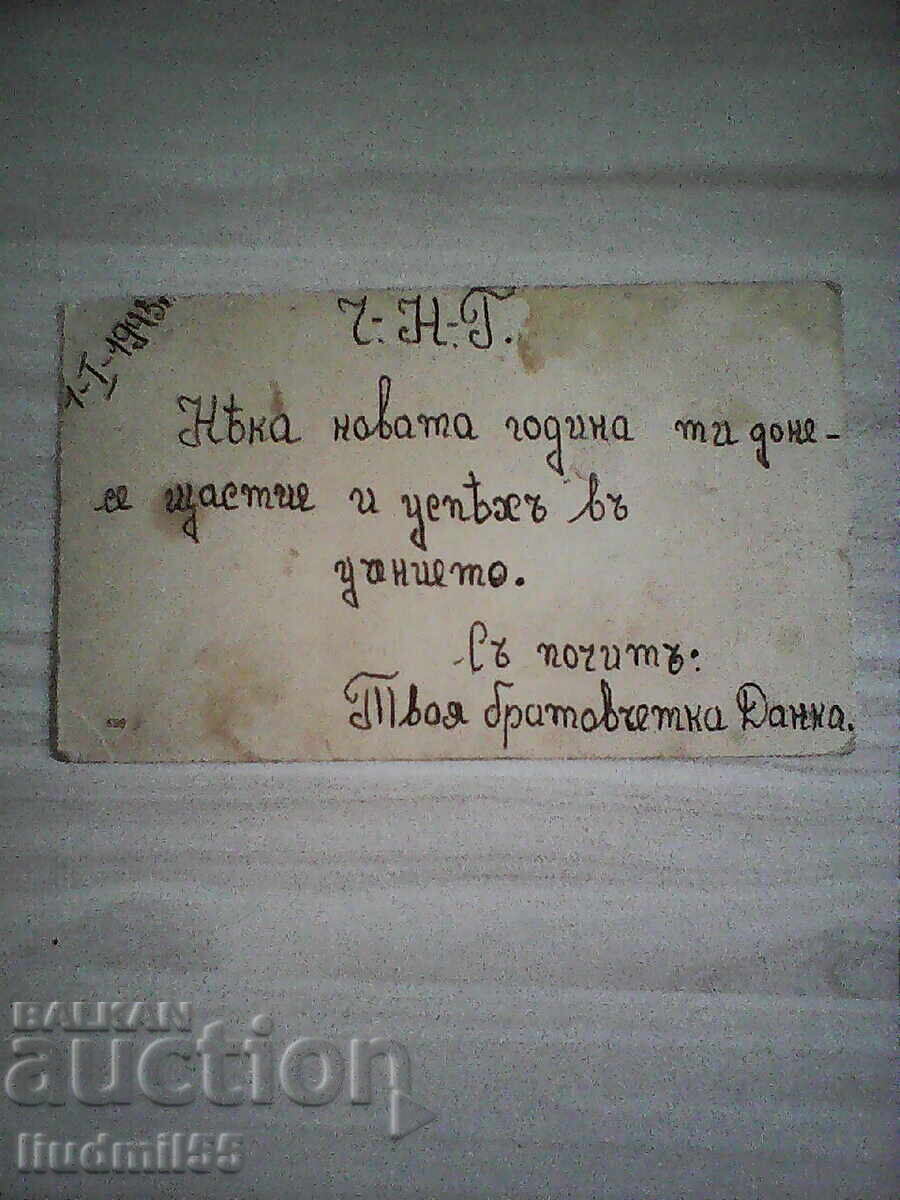 1-I-1943г.
Ч.-Н.-Г.
Нѣка новата година ти доне-
се щастие и успѣхъ въ
учението.
Съ почить:
Твоя братовчетка Данка.
BALKAN
auction
liudmil55